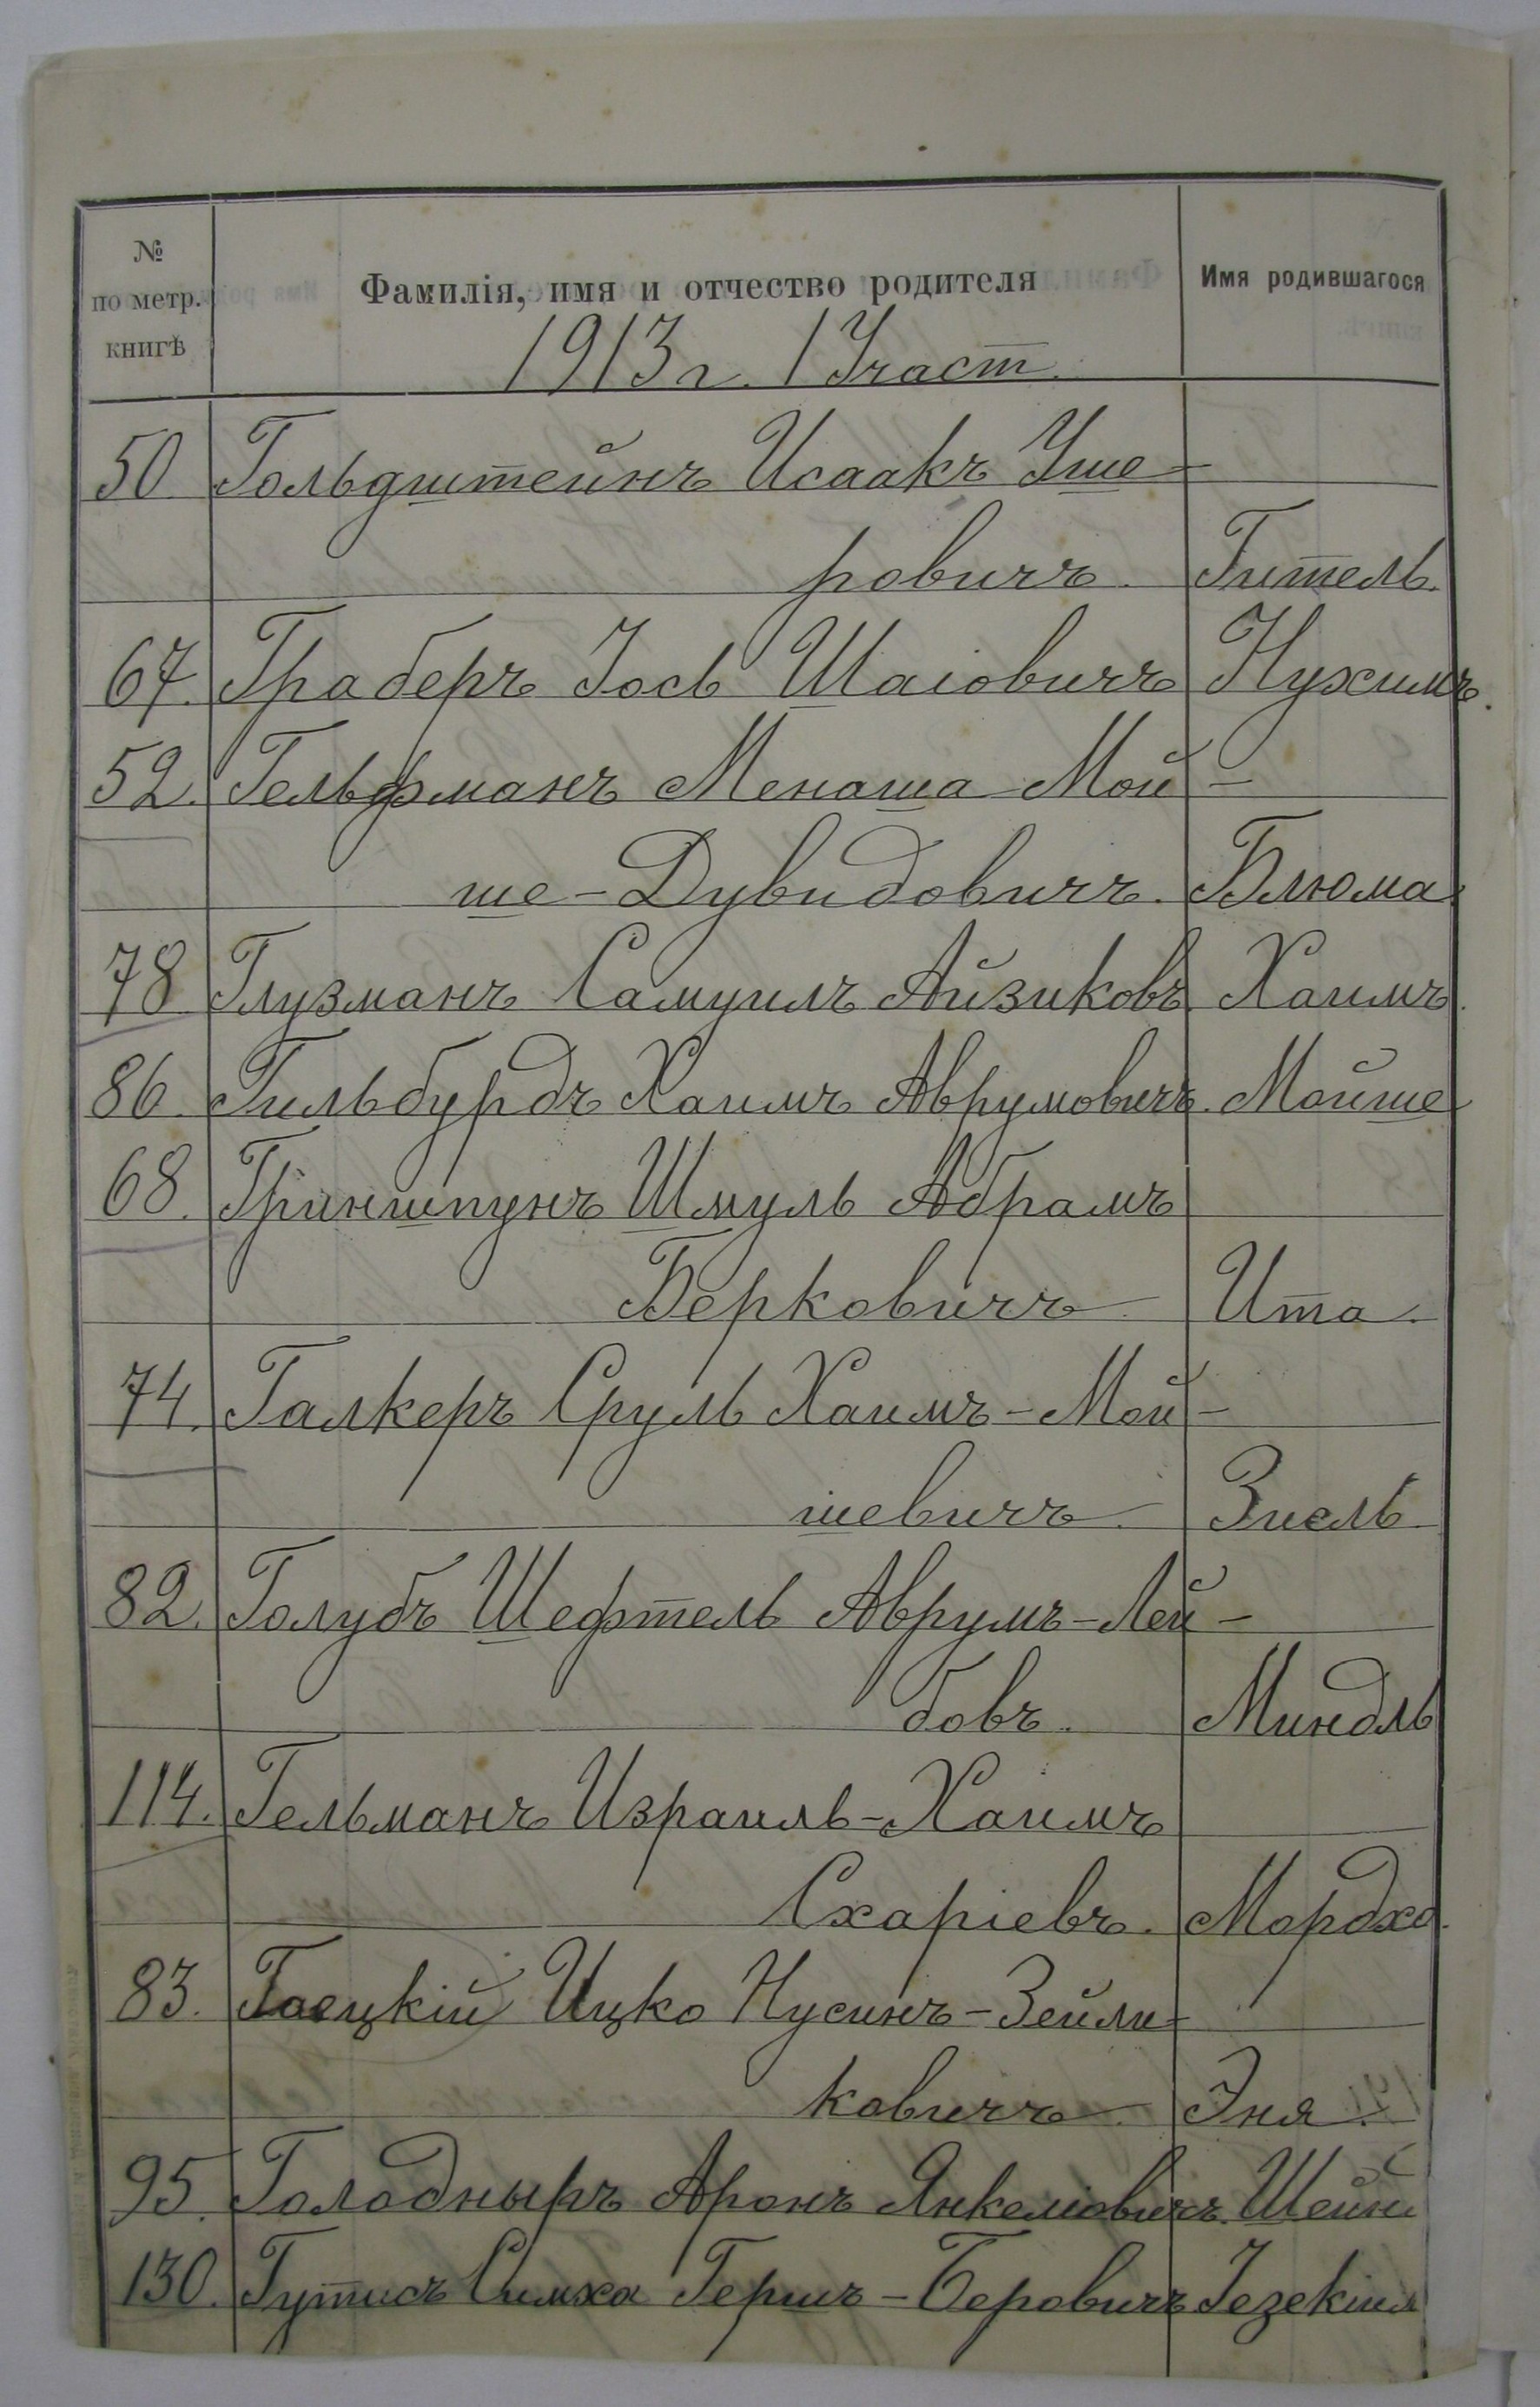 №
по метр.
книгѣ
Фамилія, имя и отчество родителя
Имя родившагося
1913 г. 1 Участ.
50 Гольдштейнъ Исаакъ Уше-
ровичъ. Гитель.
67. Граберъ Іось Шаіовичъ Нухимъ.
52. Гельфманъ Менаша Мой-
ше-Дувидовичъ. Блюма
78 Глузманъ Самуилъ Айзиковъ. Хаимъ.
86. Гильбурдъ Хаимъ Аврумовичъ. Мойше
68. Гриншпунъ Шмуль Абрамъ
Берковичъ. Ита.
74. Галкеръ Сруль Хаимъ-Мой-
шевичъ. Зисль
82. Голубъ Шефтель Аврумъ-Лей-
бовъ. Миндль
114. Гельманъ Израиль-Хаимъ
Схаріевъ. Мордхо.
83. Гаецкій Ицко Нусинъ-Зейли-
ковичъ. Эня.
95. Голодныръ Аронъ Янкеліовичъ. Шейн
130. Гутисъ Симха Гершъ-Беровичъ Іезекіил